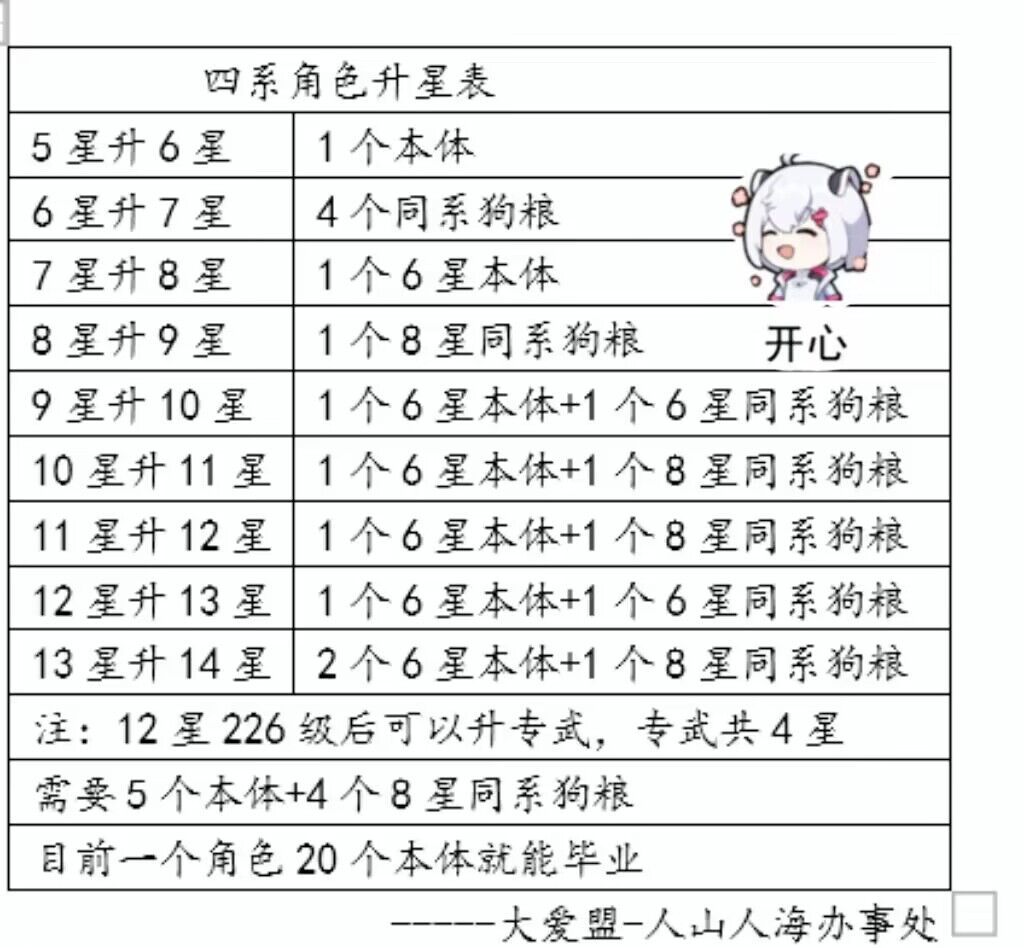 四系角色升星表
5 星升 6 星 1 个本体
6 星升 7 星 4 个同系狗粮
7 星升 8 星 1 个 6 星本体
8 星升 9 星 1 个 8 星同系狗粮
开心
9 星升 10 星 1 个 6 星本体+1 个 6 星同系狗粮
10 星升 11 星 1 个 6 星本体+1 个 8 星同系狗粮
11 星升 12 星 1 个 6 星本体+1 个 8 星同系狗粮
12 星升 13 星 1 个 6 星本体+1 个 6 星同系狗粮
13 星升 14 星 2 个 6 星本体+1 个 8 星同系狗粮
注：12 星 226 级后可以升专武，专武共 4 星
需要 5 个本体+4 个 8 星同系狗粮
目前一个角色 20 个本体就能毕业
-----大爱盟-人山人海办事处